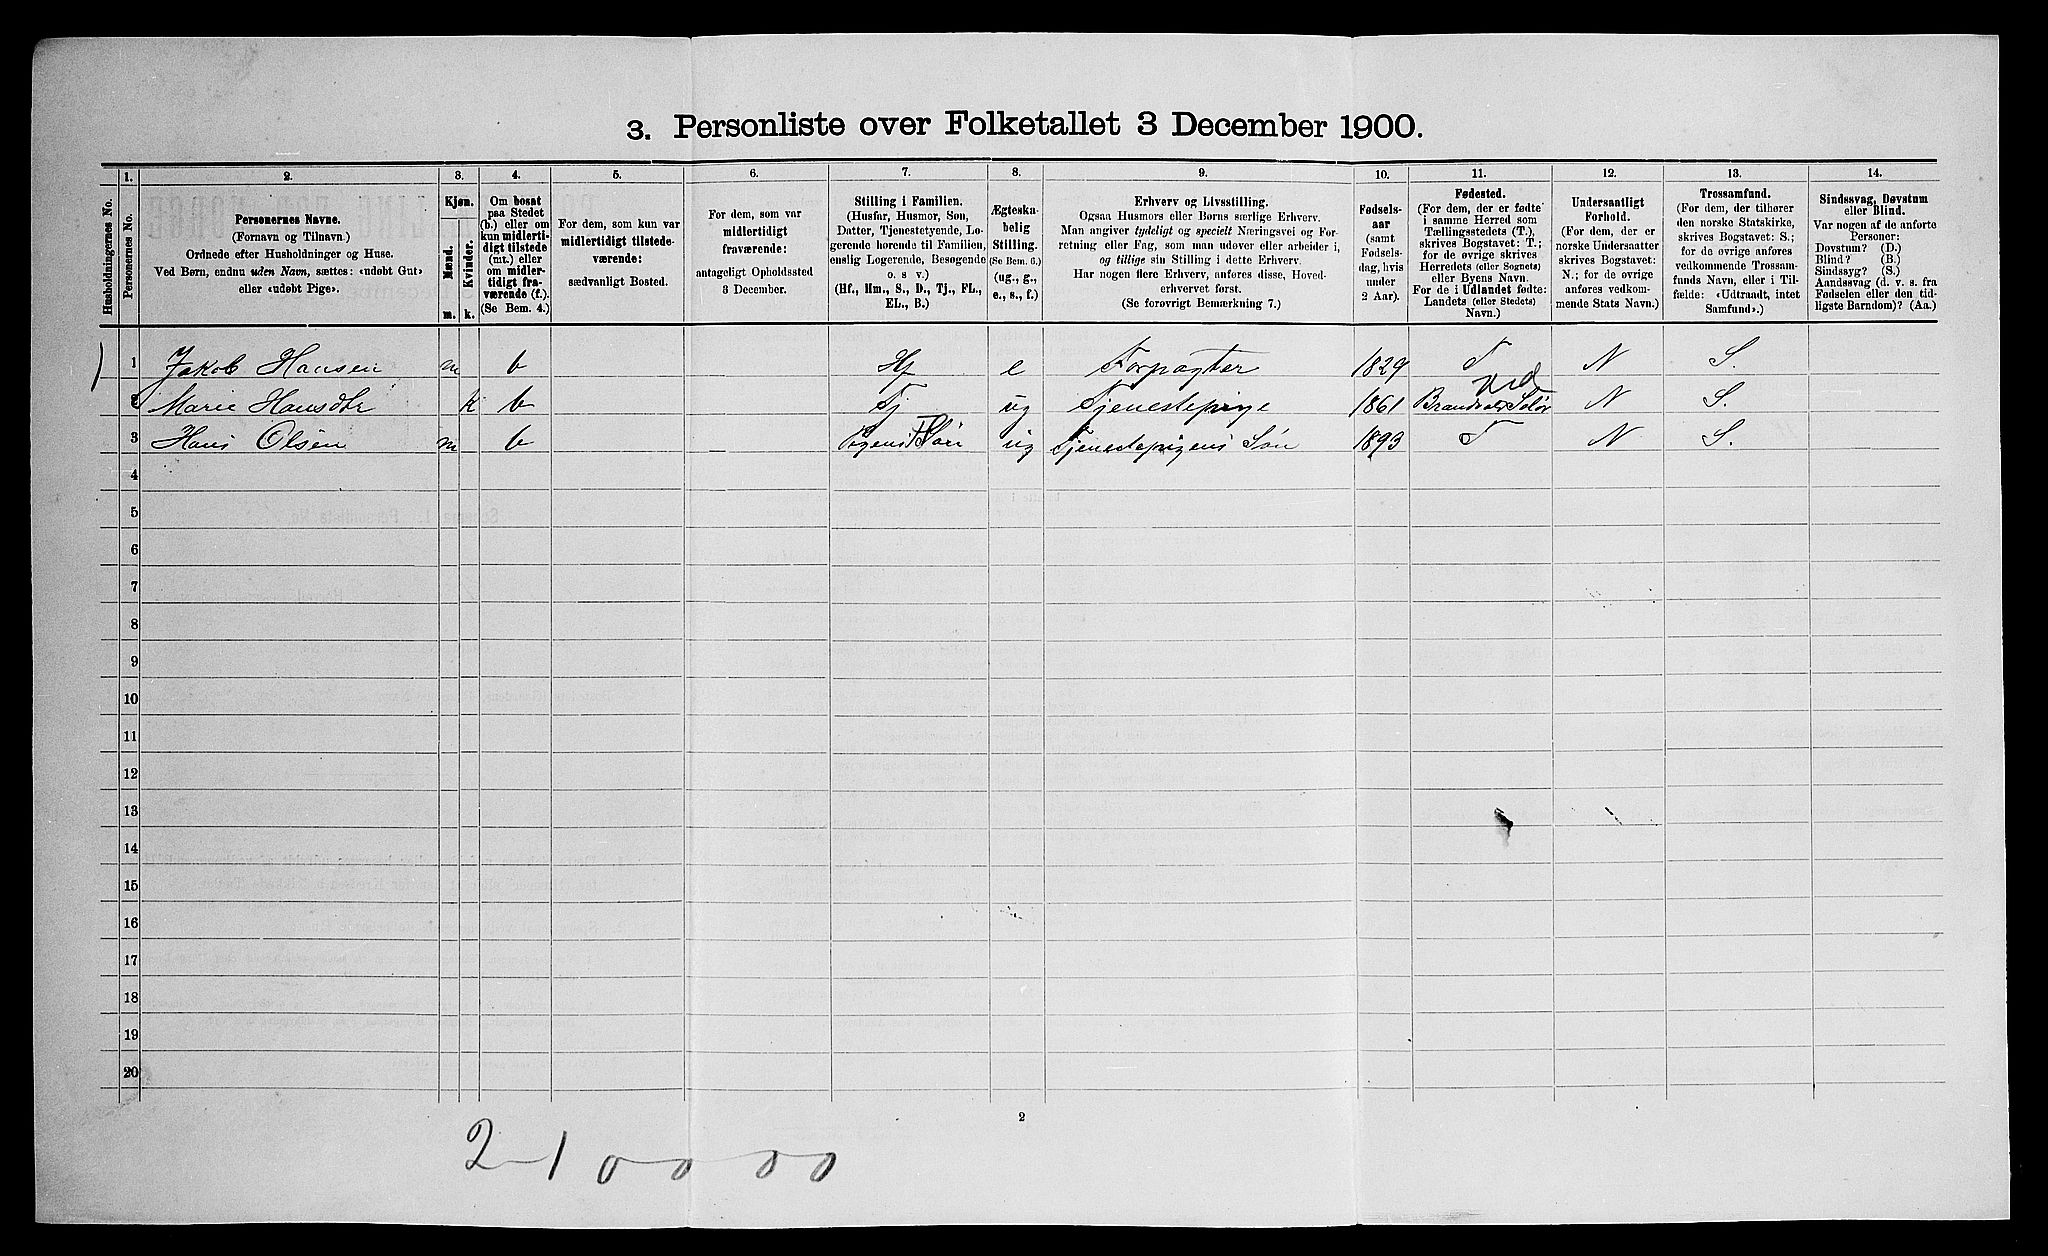 3. Personliste over Folketallet 3 December 1900.
1. 2. 3. 4. 5. 6. 7. 8. 9. 10. 11. 12. 13. 14.
Husholdningernes No.
Personernes No.
Personernes Navne.
(Fornavn og Tilnavn.)
Ordnede efter Husholdninger og Huse.
Ved Børn, endnu uden Navn, sættes: «udøbt Gut»
eller «udøbt Pige».
Kjøn.
Mænd.
Kvinder.
m. k.
Om bosat
paa Stedet
(b.) eller om
kun midlerti-
digt tilstede
(mt.) eller
om midler-
tidigt fra-
værende (f.).
(Se Bem. 4.)
For dem, som kun var
midlertidigt tilstede-
værende:
sædvanligt Bosted.
For dem, som var
midlertidigt
fraværende:
antageligt Opholdssted
3 December.
Stilling i Familien.
(Husfar, Husmor, Søn,
Datter, Tjenestetyende, Lo-
gerende hørende til Familien,
enslig Logerende, Besøgende
o. s v.)
(Hf., Hm., S., D., Tj., FL.,
EL., B.)
Ægteska-
belig
Stilling.
(Se Bem. 6.)
(ug., g.,
e., s., f.)
Erhverv og Livsstilling.
Ogsaa Husmors eller Børns særlige Erhverv.
Man angiver tydeligt og specielt Næringsvei og For-
retning eller Fag, som man udøver eller arbeider i,
og tillige sin Stilling i dette Erhverv.
Har nogen flere Erhverv, anføres disse, Hoved-
erhvervet først.
(Se forøvrigt Bemærkning 7.)
Fødsels-
aar
(samt
Fødsels-
dag, hvis
under
2 Aar).
Fødested.
(For dem, der er fødte
i samme Herred som
Tællingsstedets (T.),
skrives Bogstavet: T.;
for de øvrige skrives
Herredets (eller Sognets)
eller Byens Navn.
For de i Udlandet fødte:
Landets (eller Stedets)
Navn.)
Undersaatligt
Forhold.
(For dem, der er
norske Undersaatter
skrives Bogstavet:
N.; for de øvrige
anføres vedkom-
mende Stats Navn.)
Trossamfund.
(For dem, der tilhører
den norske Statskirke,
skrives Bogstavet: S.;
for de øvrige anføres
vedkommende Trossam-
funds Navn, eller i Til-
fælde: «Udtraadt, intet
Samfund».)
Sindssvag, Døvstum
eller Blind.
Var nogen af de anførte
Personer:
Døvstum? (D.)
Blind? (B.)
Sindssyg? (S.)
Aandssvag (d. v. s. fra
Fødselen eller den tid-
ligste Barndom)? (Aa.)
) 1 Jakob Hansen m b Hf e Forpagter 1829 T N S.
2 Marie Hansdtr k b Tj ug Tjenestepige 1861 N S.
3 Hans Olsen m b ug Tjenestepigens Søn 1893 T N S.
4
5
6
7
8
9
10
11
12
13
14
15
16
17
18
19
20
2
2-10000